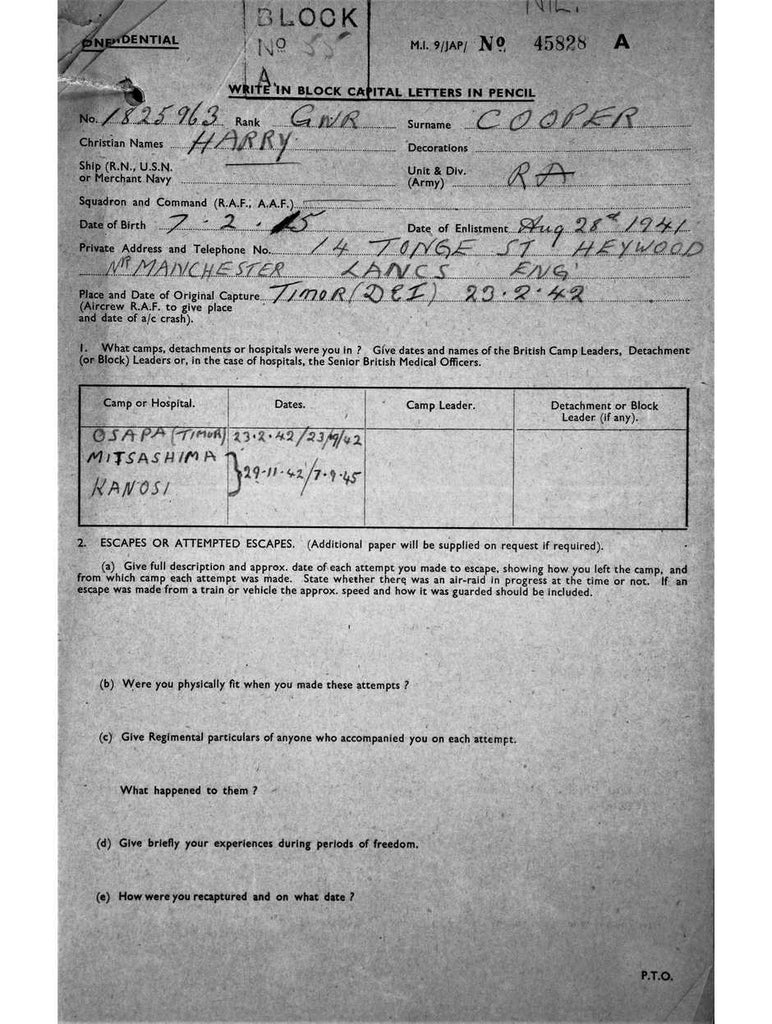 BLOCK NIL.
CONFIDENTIAL Nº 55 M.I. 9/JAP/ Nº 45828 A
A.
WRITE IN BLOCK CAPITAL LETTERS IN PENCIL
No. 1825963 Rank GNR Surname COOPER
Christian Names HARRY Decorations
Ship (R.N., U.S.N. or Merchant Navy Unit & Div. (Army) RA
Squadron and Command (R.A.F., A.A.F.)
Date of Birth 7.2.15 Date of Enlistment Aug 28th 1941
Private Address and Telephone No. 14 TONGE ST HEYWOOD
NR MANCHESTER LANCS ENG
Place and Date of Original Capture TIMOR (DEI) 23.2.42
(Aircrew R.A.F. to give place
and date of a/c crash).
1. What camps, detachments or hospitals were you in ? Give dates and names of the British Camp Leaders, Detachment
(or Block) Leaders or, in the case of hospitals, the Senior British Medical Officers.
Camp or Hospital. Dates. Camp Leader. Detachment or Block Leader (if any).
OSAPA (TIMOR) 23.2.42/23/9/42
MITSASHIMA
KANOSI 29-11-42/7.9.45
2. ESCAPES OR ATTEMPTED ESCAPES. (Additional paper will be supplied on request if required).
(a) Give full description and approx. date of each attempt you made to escape, showing how you left the camp, and
from which camp each attempt was made. State whether there was an air-raid in progress at the time or not. If an
escape was made from a train or vehicle the approx. speed and how it was guarded should be included.
(b) Were you physically fit when you made these attempts ?
(c) Give Regimental particulars of anyone who accompanied you on each attempt.
What happened to them ?
(d) Give briefly your experiences during periods of freedom.
(e) How were you recaptured and on what date ?
P.T.O.